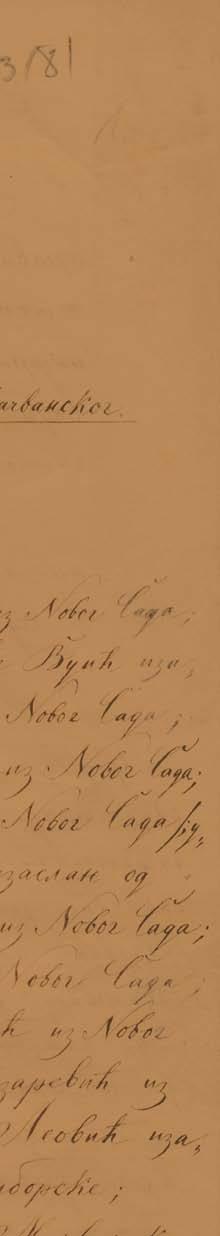 3/81
ачванског.
из Новог Сада;
Вуић иза„
Новог Сада;
из Новог Сада;
Новог Сада
изаслан од
из Новог Сада;
Новог Сада;
ћ из Новог
заревић из
Леовић иза„
мборске;